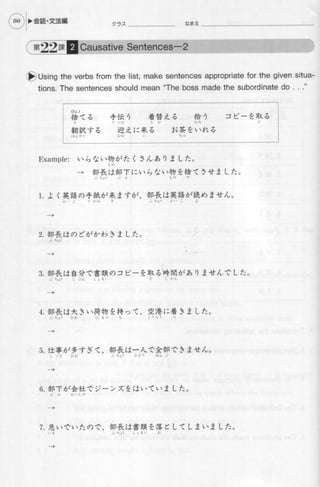 80 ▶会話・文法編
クラス なまえ
第22課 2 Causative Sentences—2
▶Using the verbs from the list, make sentences appropriate for the given situa-
tions. The sentences should mean "The boss made the subordinate do . . ."
捨てる 手伝う 着替える 拾う コピーを取る
翻訳する 迎えに来る お茶をいれる
Example: いらない物がたくさんありました。
→ 部長は部下にいらない物を捨てさせました。
1. よく英語の手紙が来ますが、部長は英語が読めません。
→
2. 部長はのどがかわきました。
→
3. 部長は自分で書類のコピーを取る時間がありませんでした。
→
4. 部長は大きい荷物を持って、空港に着きました。
→
5. 仕事が多すぎて、部長は一人で全部できません。
→
6. 部下が会社でジーンズをはいていました。
→
7. 急いでいたので、部長は書類を落としてしまいました。
→